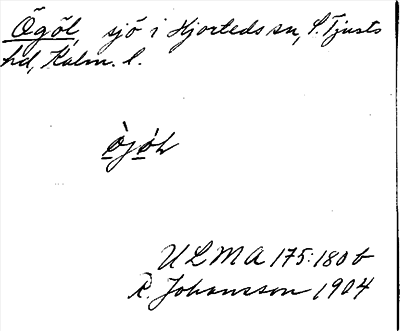 Ögöl, sjö i Hjorteds sn, S. Tjusts
hd, Kalm. l.
ö̀jöl
ULMA 175:180 b
R. Johansson 1904